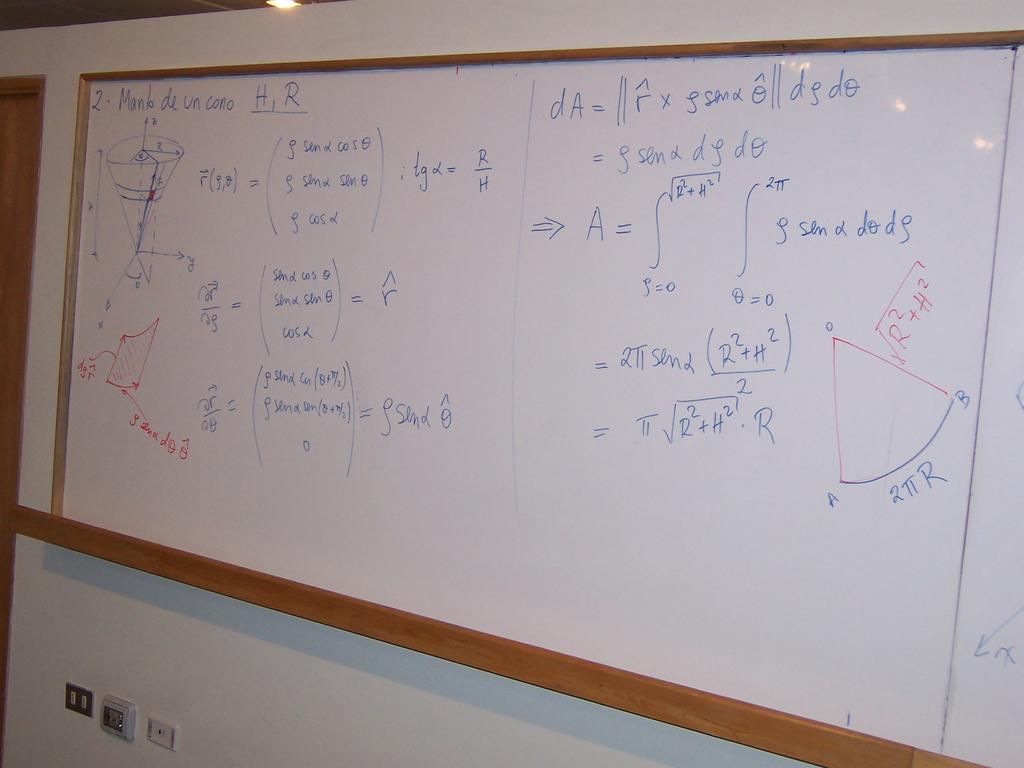 2. Manto de un cono H, R
z
R
y
x
r⃗(ρ,θ) = ( ρ senα cosθ
ρ senα senθ
ρ cosα ) ; tgα = R/H
∂r⃗/∂ρ = ( senα cosθ
senα senθ
cosα ) = r̂
∂r⃗/∂θ = ( ρ senα cos(θ+π/2)
ρ senα sen(θ+π/2)
0 ) = ρ senα θ̂
dρ r̂
ρ senα dθ θ̂
dA = ‖ r̂ × ρ senα θ̂ ‖ dρ dθ
= ρ senα dρ dθ
⇒ A = ∫_{ρ=0}^{√(R²+H²)} ∫_{θ=0}^{2π} ρ senα dθ dρ
= 2π senα (R²+H²)/2
= π √(R²+H²) · R
O
√(R²+H²)
B
A
2πR
x